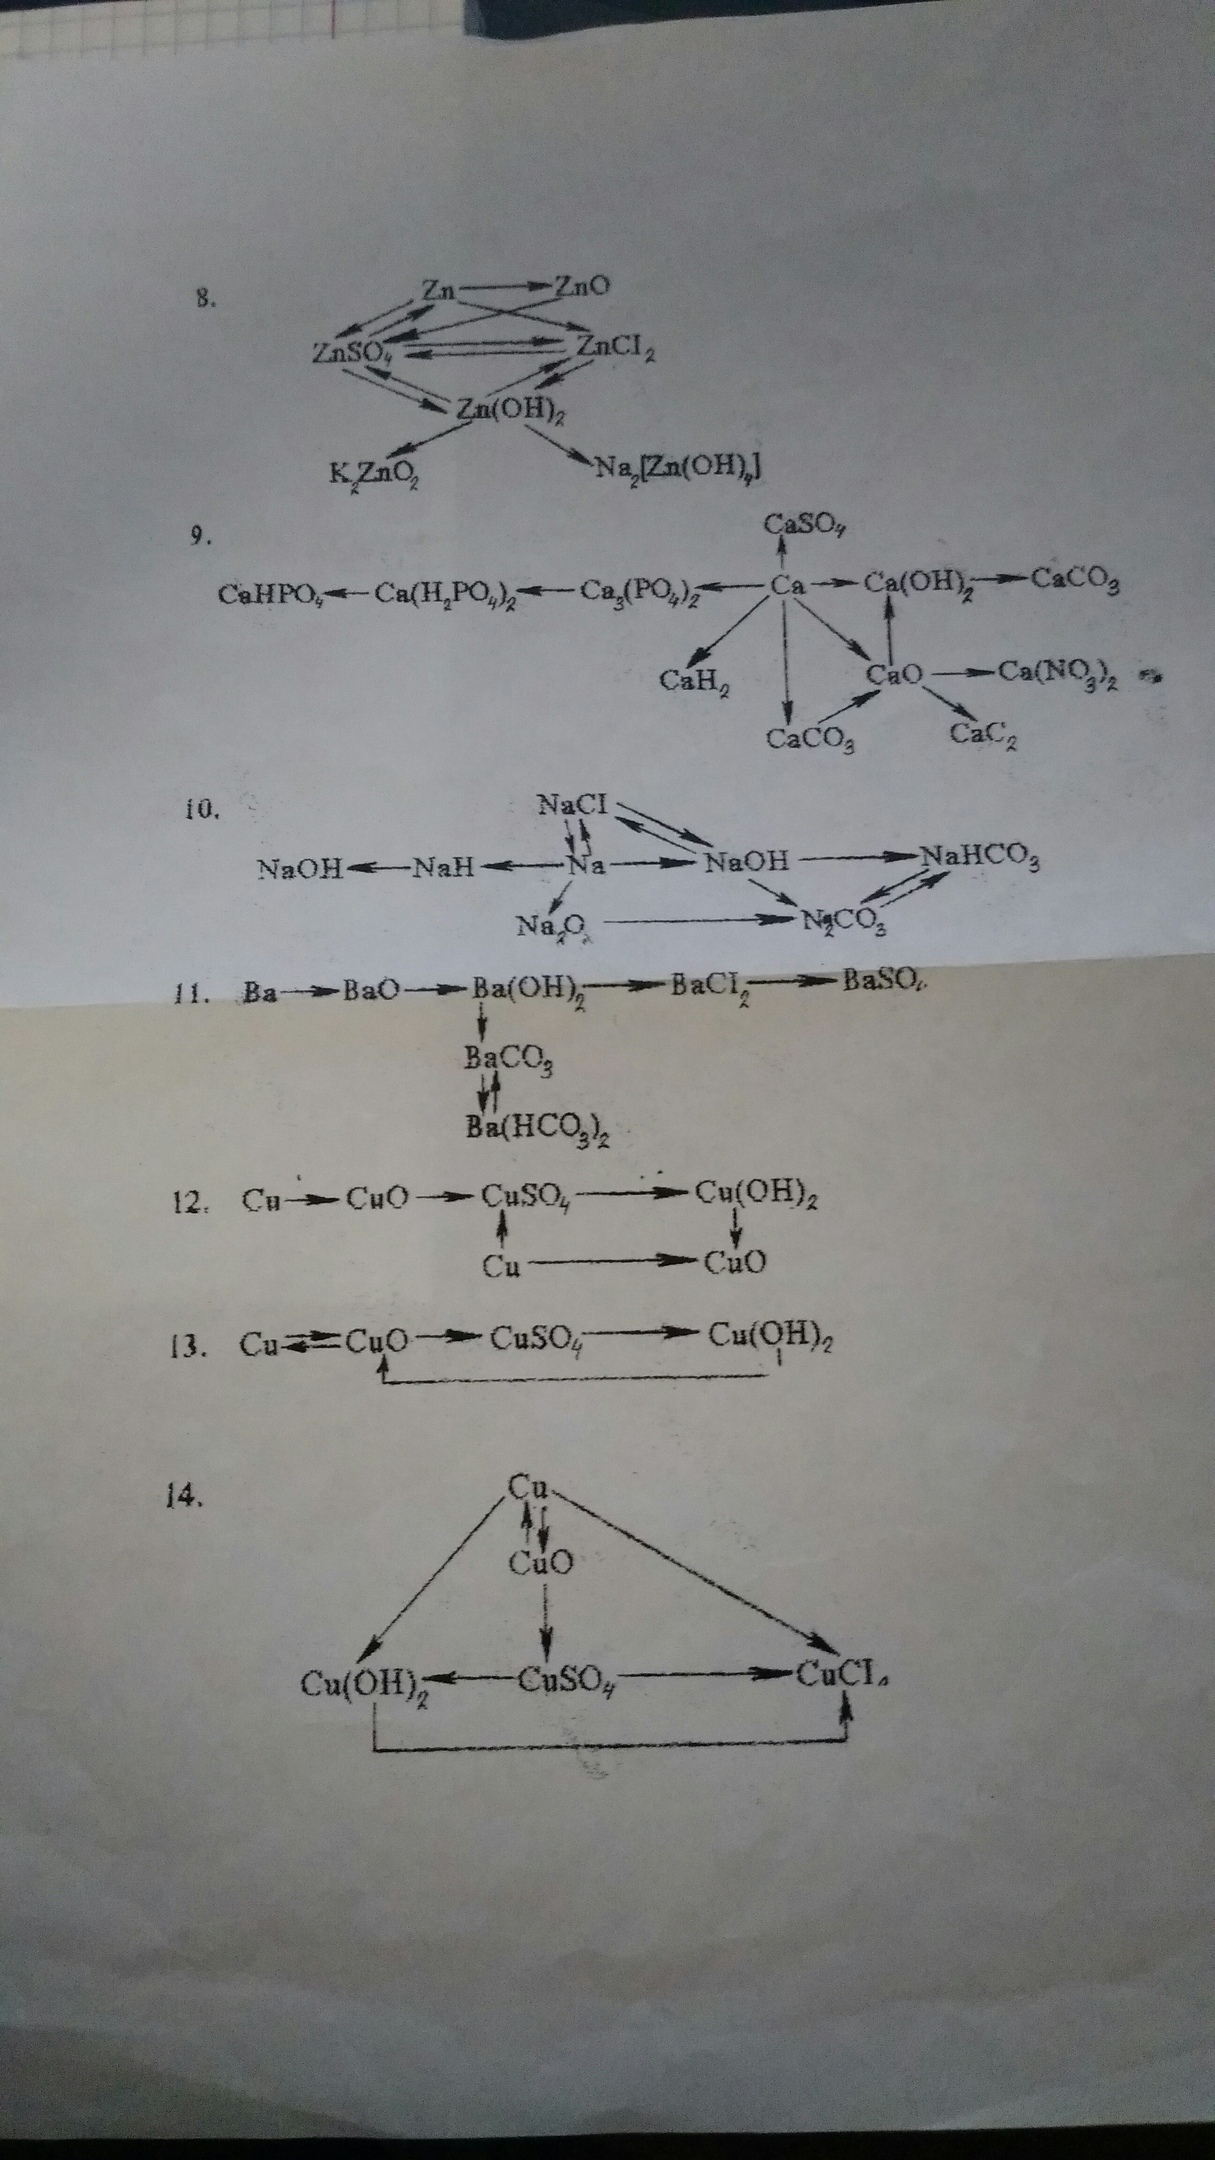 8. Zn → ZnO
ZnSO₄ ⇄ ZnCl₂
Zn(OH)₂
K₂ZnO₂ Na₂[Zn(OH)₄]
9. CaSO₄
CaHPO₄ ← Ca(H₂PO₄)₂ ← Ca₃(PO₄)₂ ← Ca → Ca(OH)₂ → CaCO₃
CaH₂ CaO → Ca(NO₃)₂
CaCO₃ CaC₂
10. NaCl
NaOH ← NaH ← Na → NaOH → NaHCO₃
Na₂O₂ → Na₂CO₃
11. Ba → BaO → Ba(OH)₂ → BaCl₂ → BaSO₄
BaCO₃
Ba(HCO₃)₂
12. Cu → CuO → CuSO₄ → Cu(OH)₂
Cu → CuO
13. Cu ⇄ CuO → CuSO₄ → Cu(OH)₂
14. Cu
CuO
Cu(OH)₂ ← CuSO₄ → CuCl₂